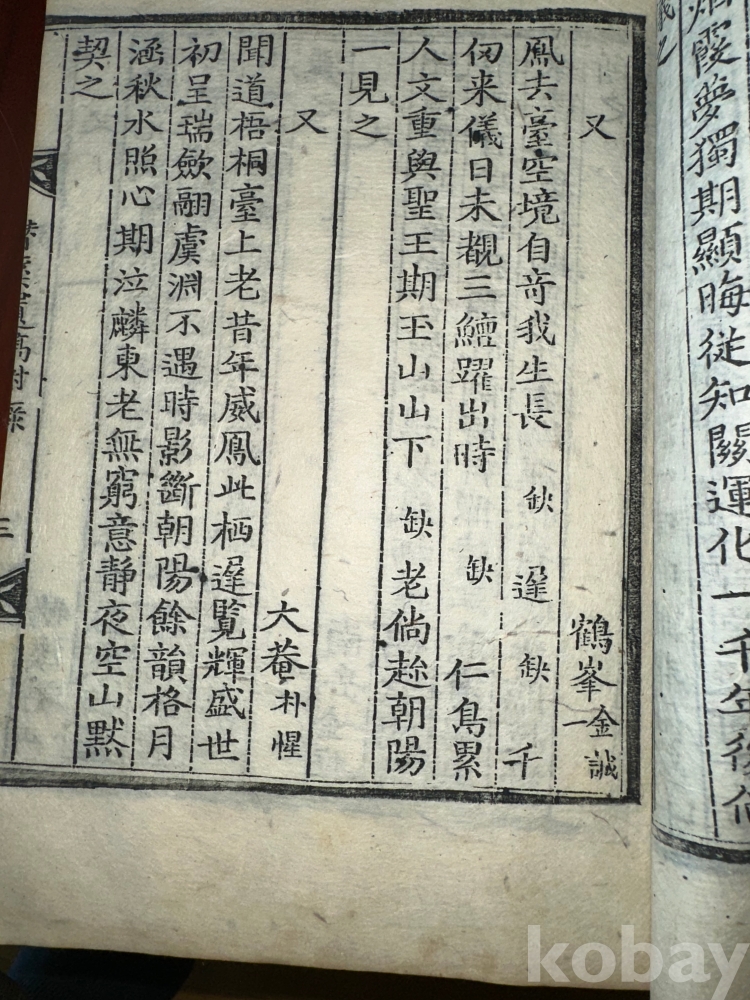 煙霞夢獨期顯晦從知關運化一千年後
又
鶴峯金誠一
鳳去臺空境自奇我生長 缺 遲 缺 千
仞来儀日未覩三鱣躍出時 缺 仁鳥累
人文重與聖王期玉山山下 缺 老倘趂朝陽
一見之
又
大菴朴惺
聞道梧桐臺上老昔年威鳳此栖遲覧輝盛世
初呈瑞歛翮虞淵不遇時影斷朝陽餘韻格月
涵秋水照心期泣麟東老無窮意静夜空山黙
契之
三
kobay